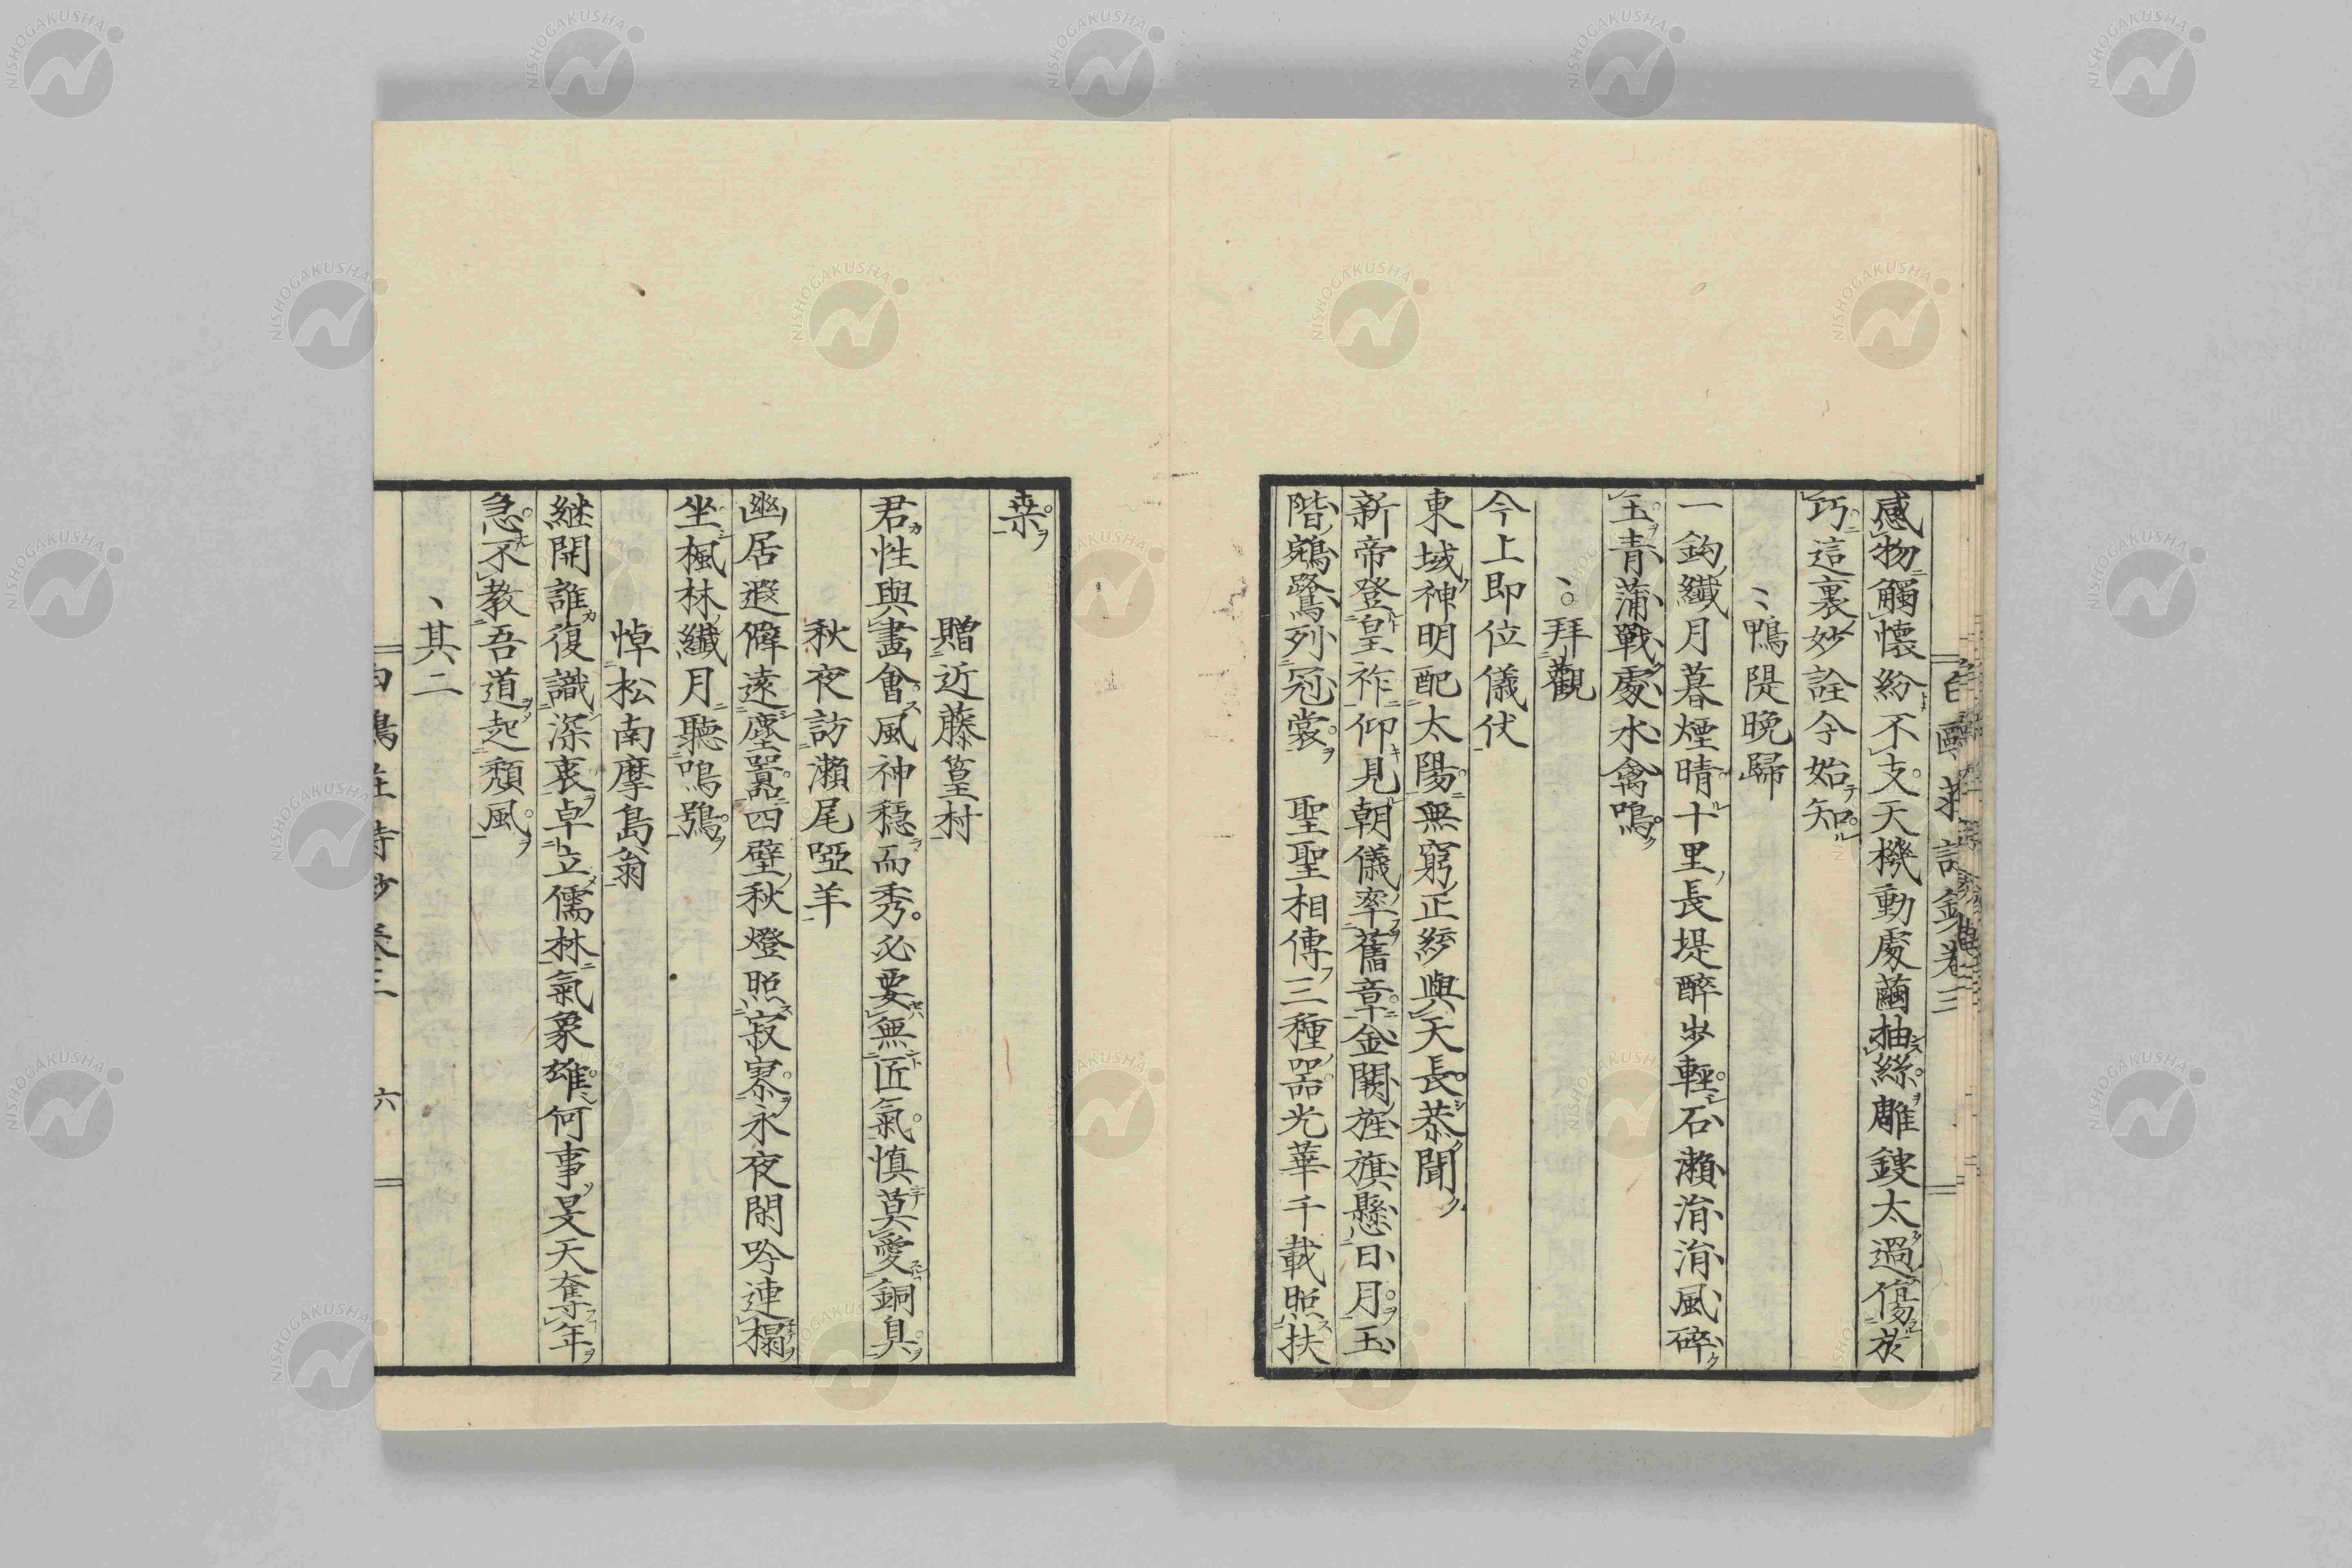 白鷗莊詩鈔卷三
感物觸懷紛不支天機動處繭抽絲雕鎪太過傷於
巧這裏妙詮今始知
鴨隄晚歸
一鈎纖月暮煙晴十里長堤醉步輕石瀨潸潸風碎
玉青蒲戰處水禽鳴
拜觀
今上即位儀伏
東域神明配太陽無窮正統與天長恭聞
新帝登皇祚仰見朝儀率舊章金闕旌旗懸日月玉
階鵷鷺列冠裳 聖聖相傳三種器光華千載照扶
桒
贈近藤篁村
君性與畫會風神穩而秀必要無匠氣慎莫愛銅臭
秋夜訪瀨尾啞羊
幽居遐僻遠塵囂四壁秋燈照寂寥永夜閑吟連榻
坐楓林纖月聽鳴鴞
悼松南摩島翁
継開誰復識深衷卓立儒林氣象雄何事旻天奪年
急不教吾道起頹風
其二
六
NISHOGAKUSHA